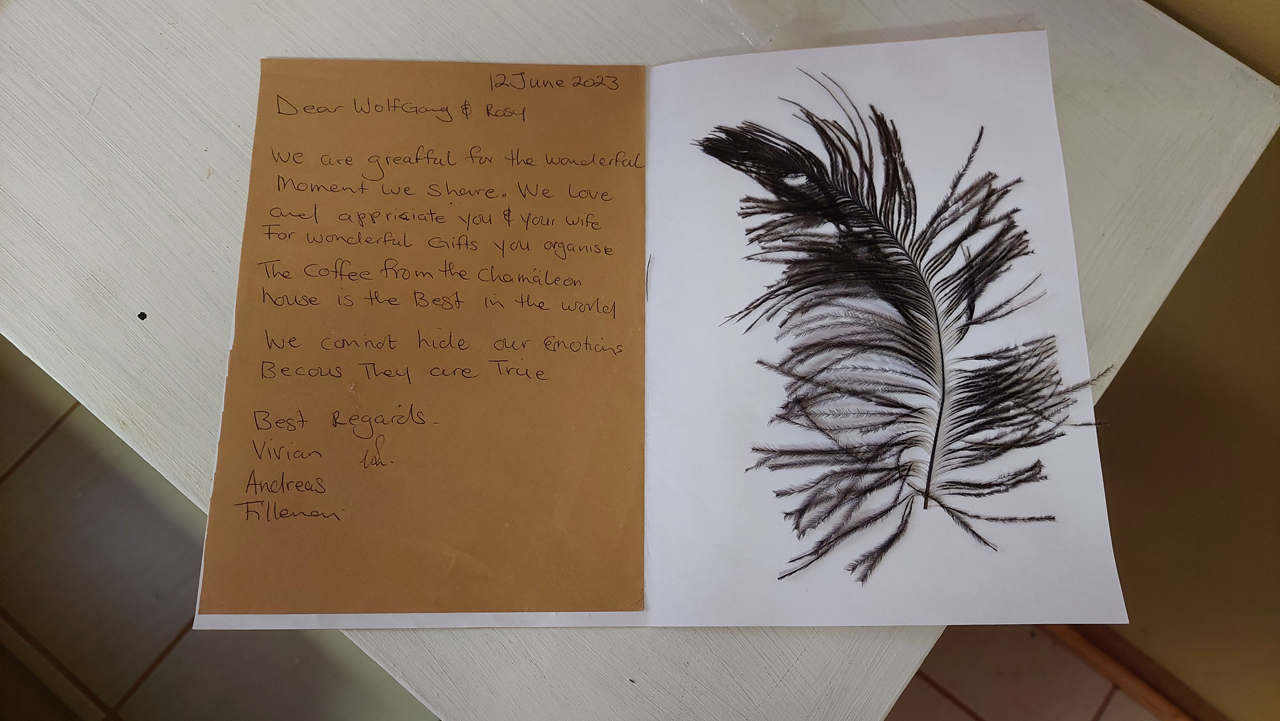 12 June 2023
Dear WolfGang & Rosy
We are greatful for the wonderful
Moment we share. We Love
and appriciate you & your wife
For wonderful Gifts you organise
The Coffee from the Chamäleon
house is the Best in the world
We cannot hide our emotions
Becous They are True
Best Regards.
Vivian
Andreas
Fillemon